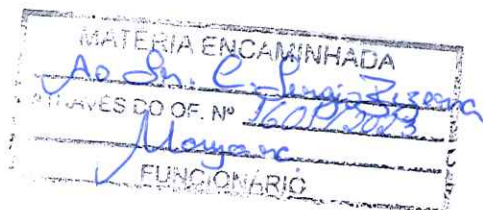 MATÉRIA ENCAMINHADA
Ao Sr. C. Sergio
ATRAVÉS DO OF. Nº 1601/2023
Mayara
FUNCIONÁRIO